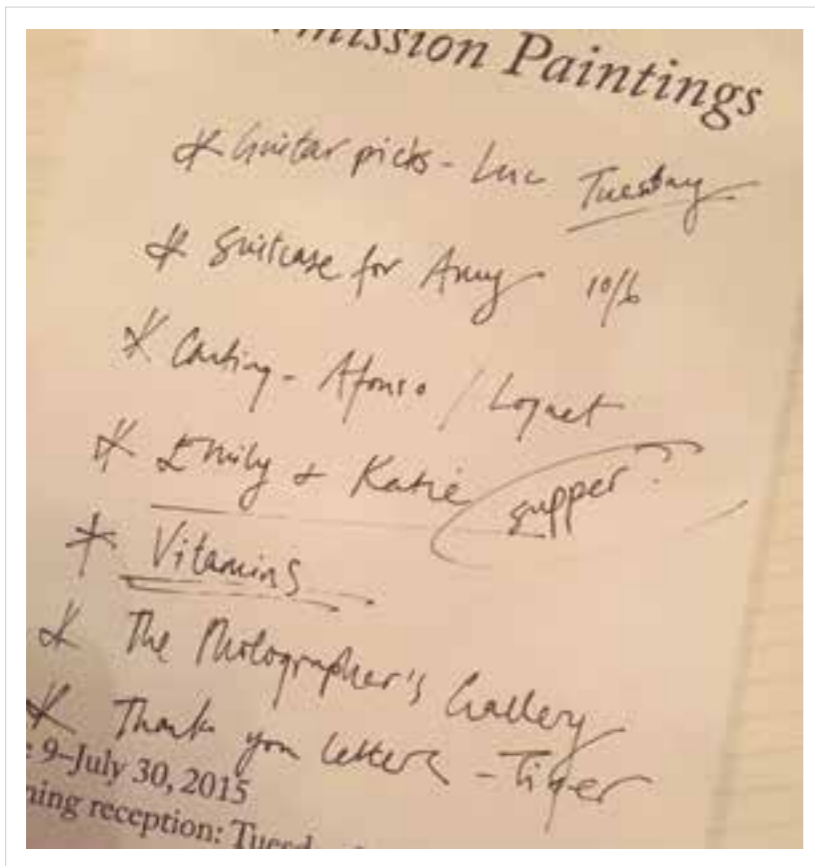 mission Paintings
* Guitar picks - Luc Tuesday
* Suitcase for Amy 10/6
* Casting - Afonso /
* Emily + Katie supper?
* Vitamins
* The Photographer's Gallery
* Thank you letters - Tiger
9–July 30, 2015
ning reception: